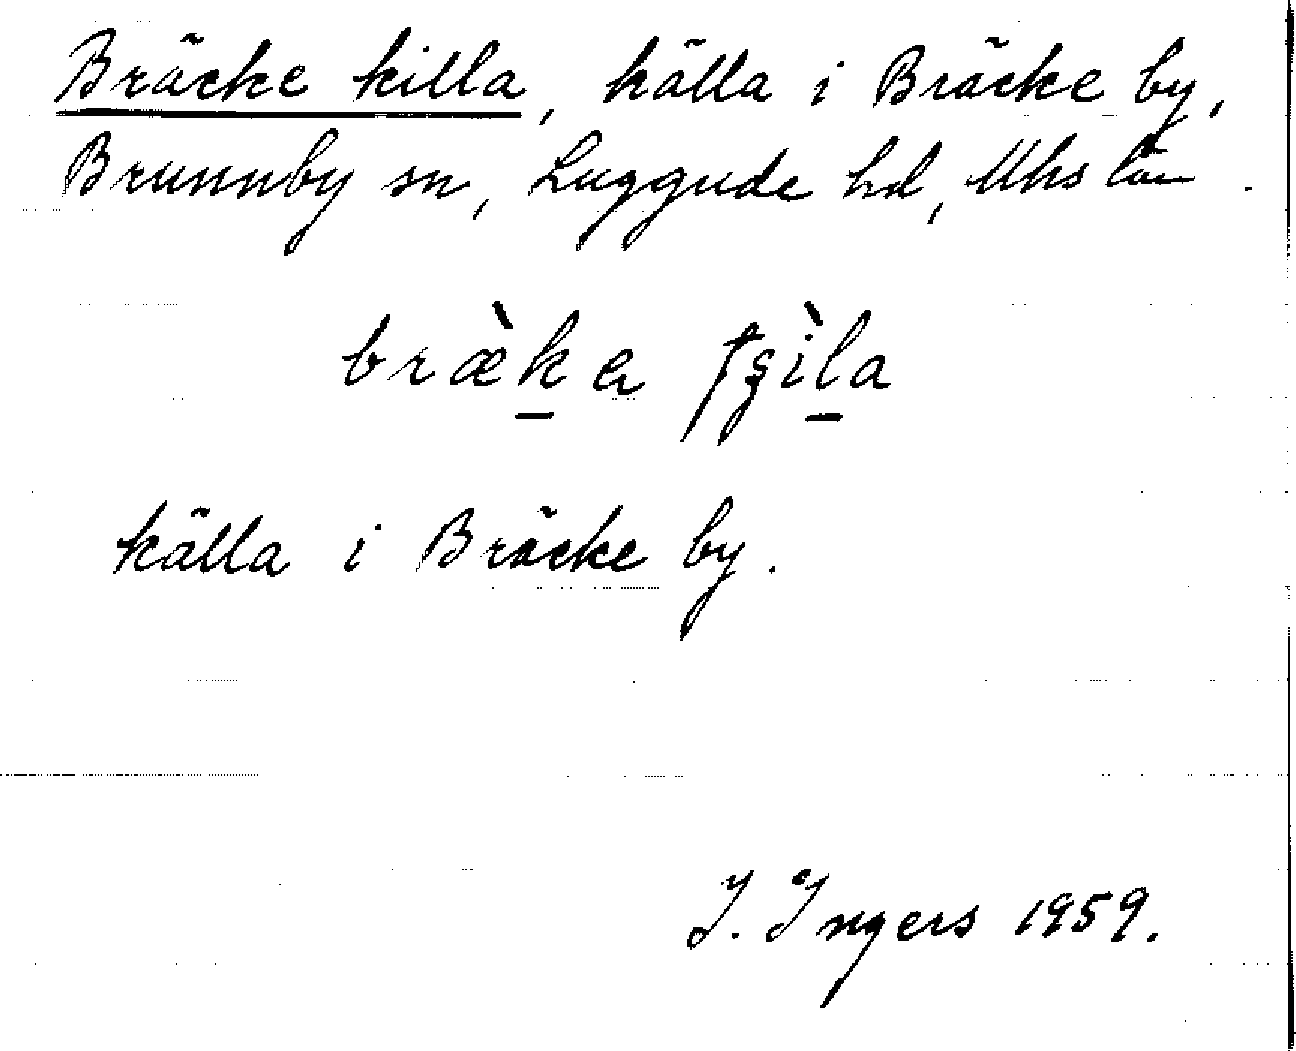 Bräcke killa, källa i Bräcke by,
Brunnby sn, Luggude hd, Mhs län.
bræ̀ḵa tʂìḻa
källa i Bräcke by.
I. Ingers 1959.